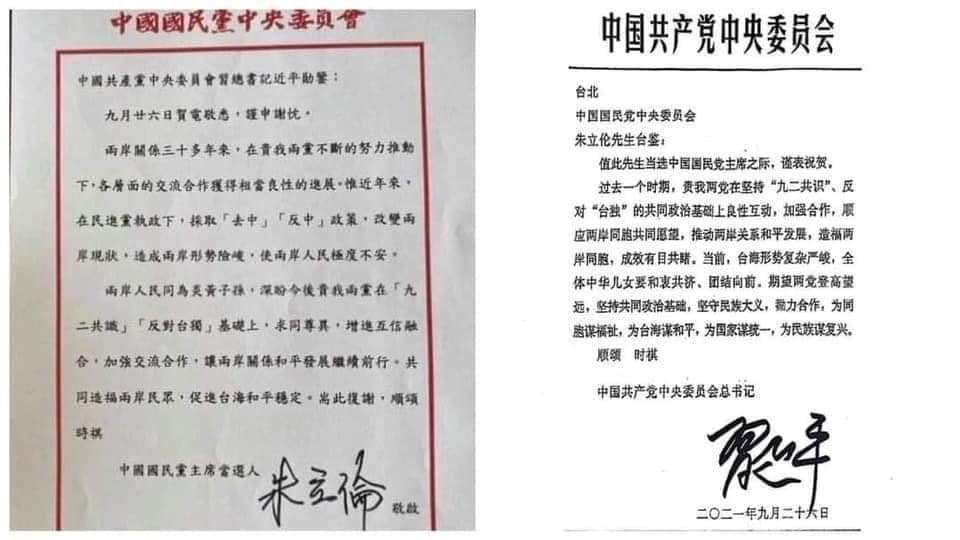 中國國民黨中央委員會
中國共產黨中央委員會習總書記近平勛鑒：
九月廿六日賀電敬悉，謹申謝忱。
兩岸關係三十多年來，在貴我兩黨不斷的努力推動
下，各層面的交流合作獲得相當良性的進展。惟近年來，
在民進黨執政下，採取「去中」「反中」政策，改變兩
岸現狀，造成兩岸形勢險峻，使兩岸人民極度不安。
兩岸人民同為炎黃子孫，深盼今後貴我兩黨在「九
二共識」「反對台獨」基礎上，求同尊異，增進互信融
合，加強交流合作，讓兩岸關係和平發展繼續前行。共
同造福兩岸民眾，促進台海和平穩定。耑此復謝，順頌
時祺
中國國民黨主席當選人
朱立倫 敬啟
中国共产党中央委员会
台北
中国国民党中央委员会
朱立伦先生台鉴：
值此先生当选中国国民党主席之际，谨表祝贺。
过去一个时期，贵我两党在坚持“九二共识”、反
对“台独”的共同政治基础上良性互动，加强合作，顺
应两岸同胞共同愿望，推动两岸关系和平发展，造福两
岸同胞，成效有目共睹。当前，台海形势复杂严峻，全
体中华儿女要和衷共济、团结向前。期望两党登高望
远，坚持共同政治基础，坚守民族大义，勠力合作，为同
胞谋福祉，为台海谋和平，为国家谋统一，为民族谋复兴。
顺颂 时祺
中国共产党中央委员会总书记
习近平
二〇二一年九月二十六日